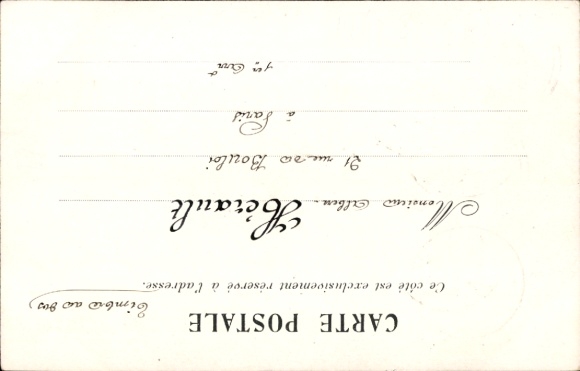 CARTE POSTALE
Timbre au dos
Ce côté est exclusivement réservé à l'adresse.
Monsieur Alben. Hérault
21 rue du Bouloi
à Paris
1er Arrt